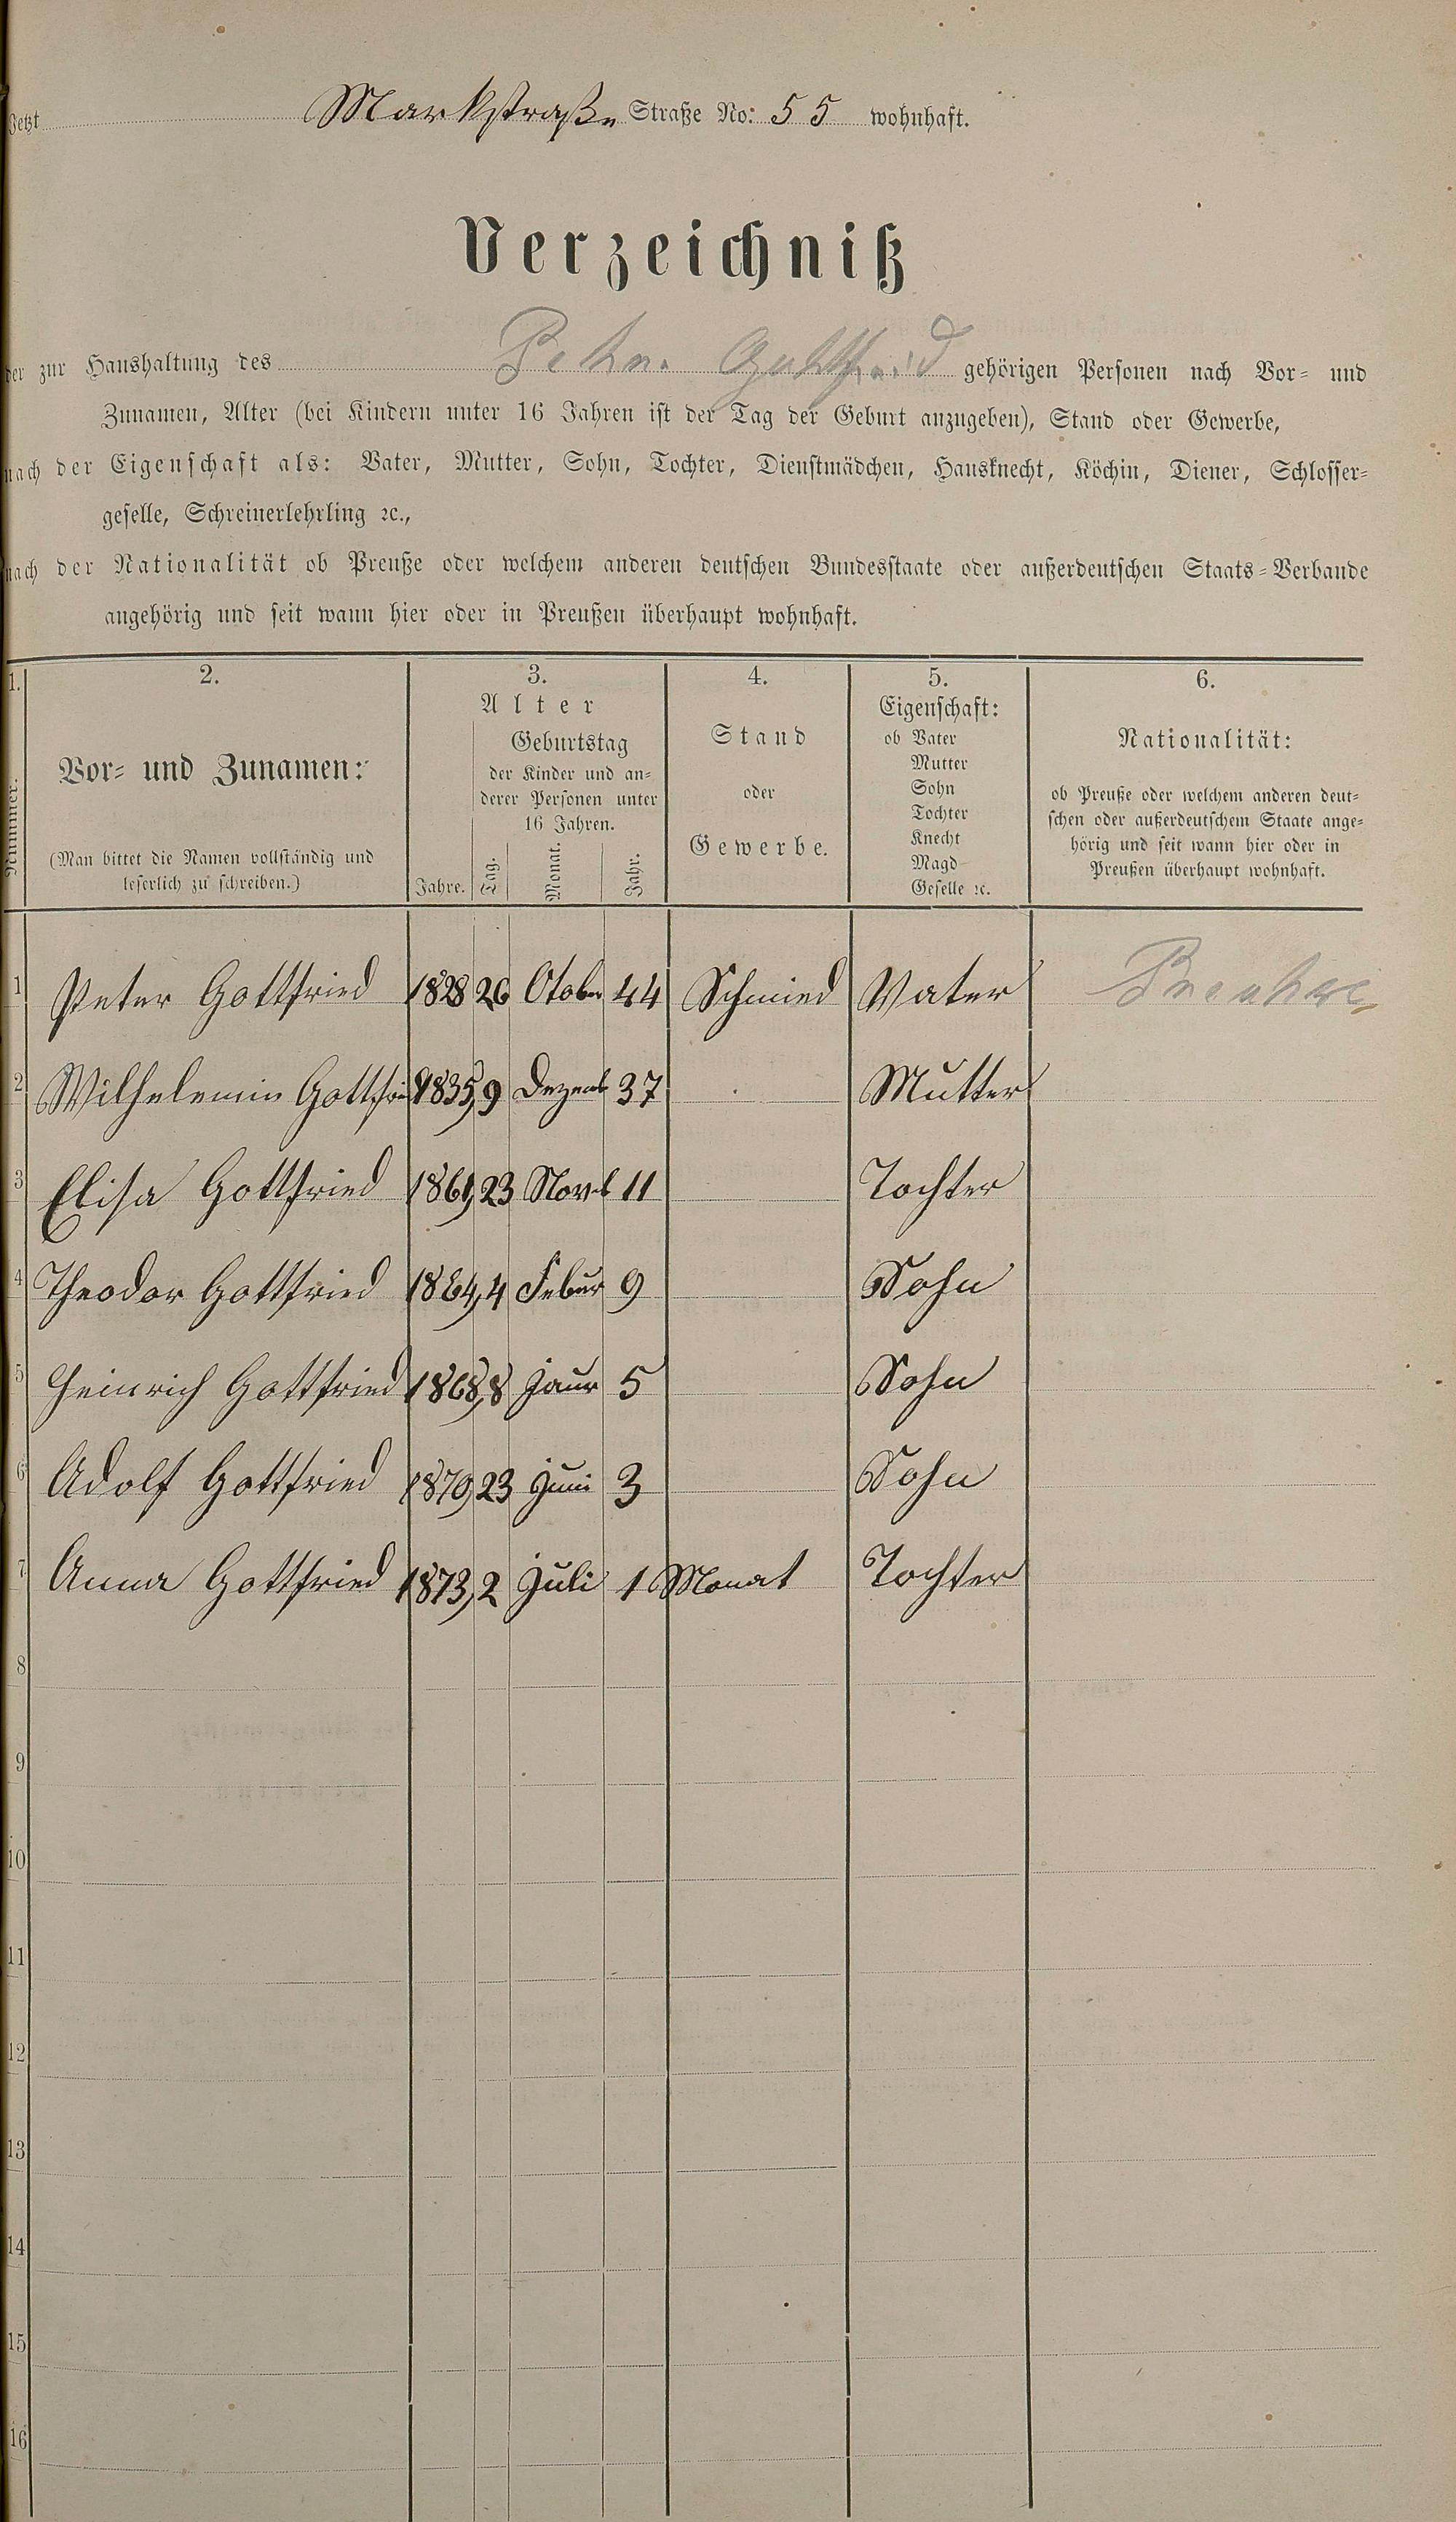 Jetzt Markstraße Straße No: 55 wohnhaft.
Verzeichniß
der zur Haushaltung des Peter Gottfried gehörigen Personen nach Vor- und
Zunamen, Alter (bei Kindern unter 16 Jahren ist der Tag der Geburt anzugeben), Stand oder Gewerbe,
nach der Eigenschaft als: Vater, Mutter, Sohn, Tochter, Dienstmädchen, Hausknecht, Köchin, Diener, Schlosser-
geselle, Schreinerlehrling ꝛc.,
nach der Nationalität ob Preuße oder welchem anderen deutschen Bundesstaate oder außerdeutschen Staats-Verbande
angehörig und seit wann hier oder in Preußen überhaupt wohnhaft.
1. 2. 3. 4. 5. 6.
Nummer.
Vor- und Zunamen:
(Man bittet die Namen vollständig und
leserlich zu schreiben.)
Alter
Geburtstag
der Kinder und an-
derer Personen unter
16 Jahren.
Jahre. Tag. Monat. Jahr.
Stand
oder
Gewerbe.
Eigenschaft:
ob Vater
Mutter
Sohn
Tochter
Knecht
Magd
Geselle ꝛc.
Nationalität:
ob Preuße oder welchem anderen deut-
schen oder außerdeutschem Staate ange-
hörig und seit wann hier oder in
Preußen überhaupt wohnhaft.
1 Peter Gottfried 1828 26 Otober 44 Schmied Vater Preuße
2 Wilhelemin Gottfri 1835, 9 Dezemb 37 Mutter
3 Elisa Gottfried 1861, 23 Novb 11 Tochter
4 Theodor Gottfried 1864, 4 Febur 9 Sohn
5 Heinrich Gottfried 1868, 8 Jaur 5 Sohn
6 Adolf Gottfried 1870, 23 Juni 3 Sohn
7 Anna Gottfried 1873, 2 Juli 1 Monat Tochter
8
9
10
11
12
13
14
15
16